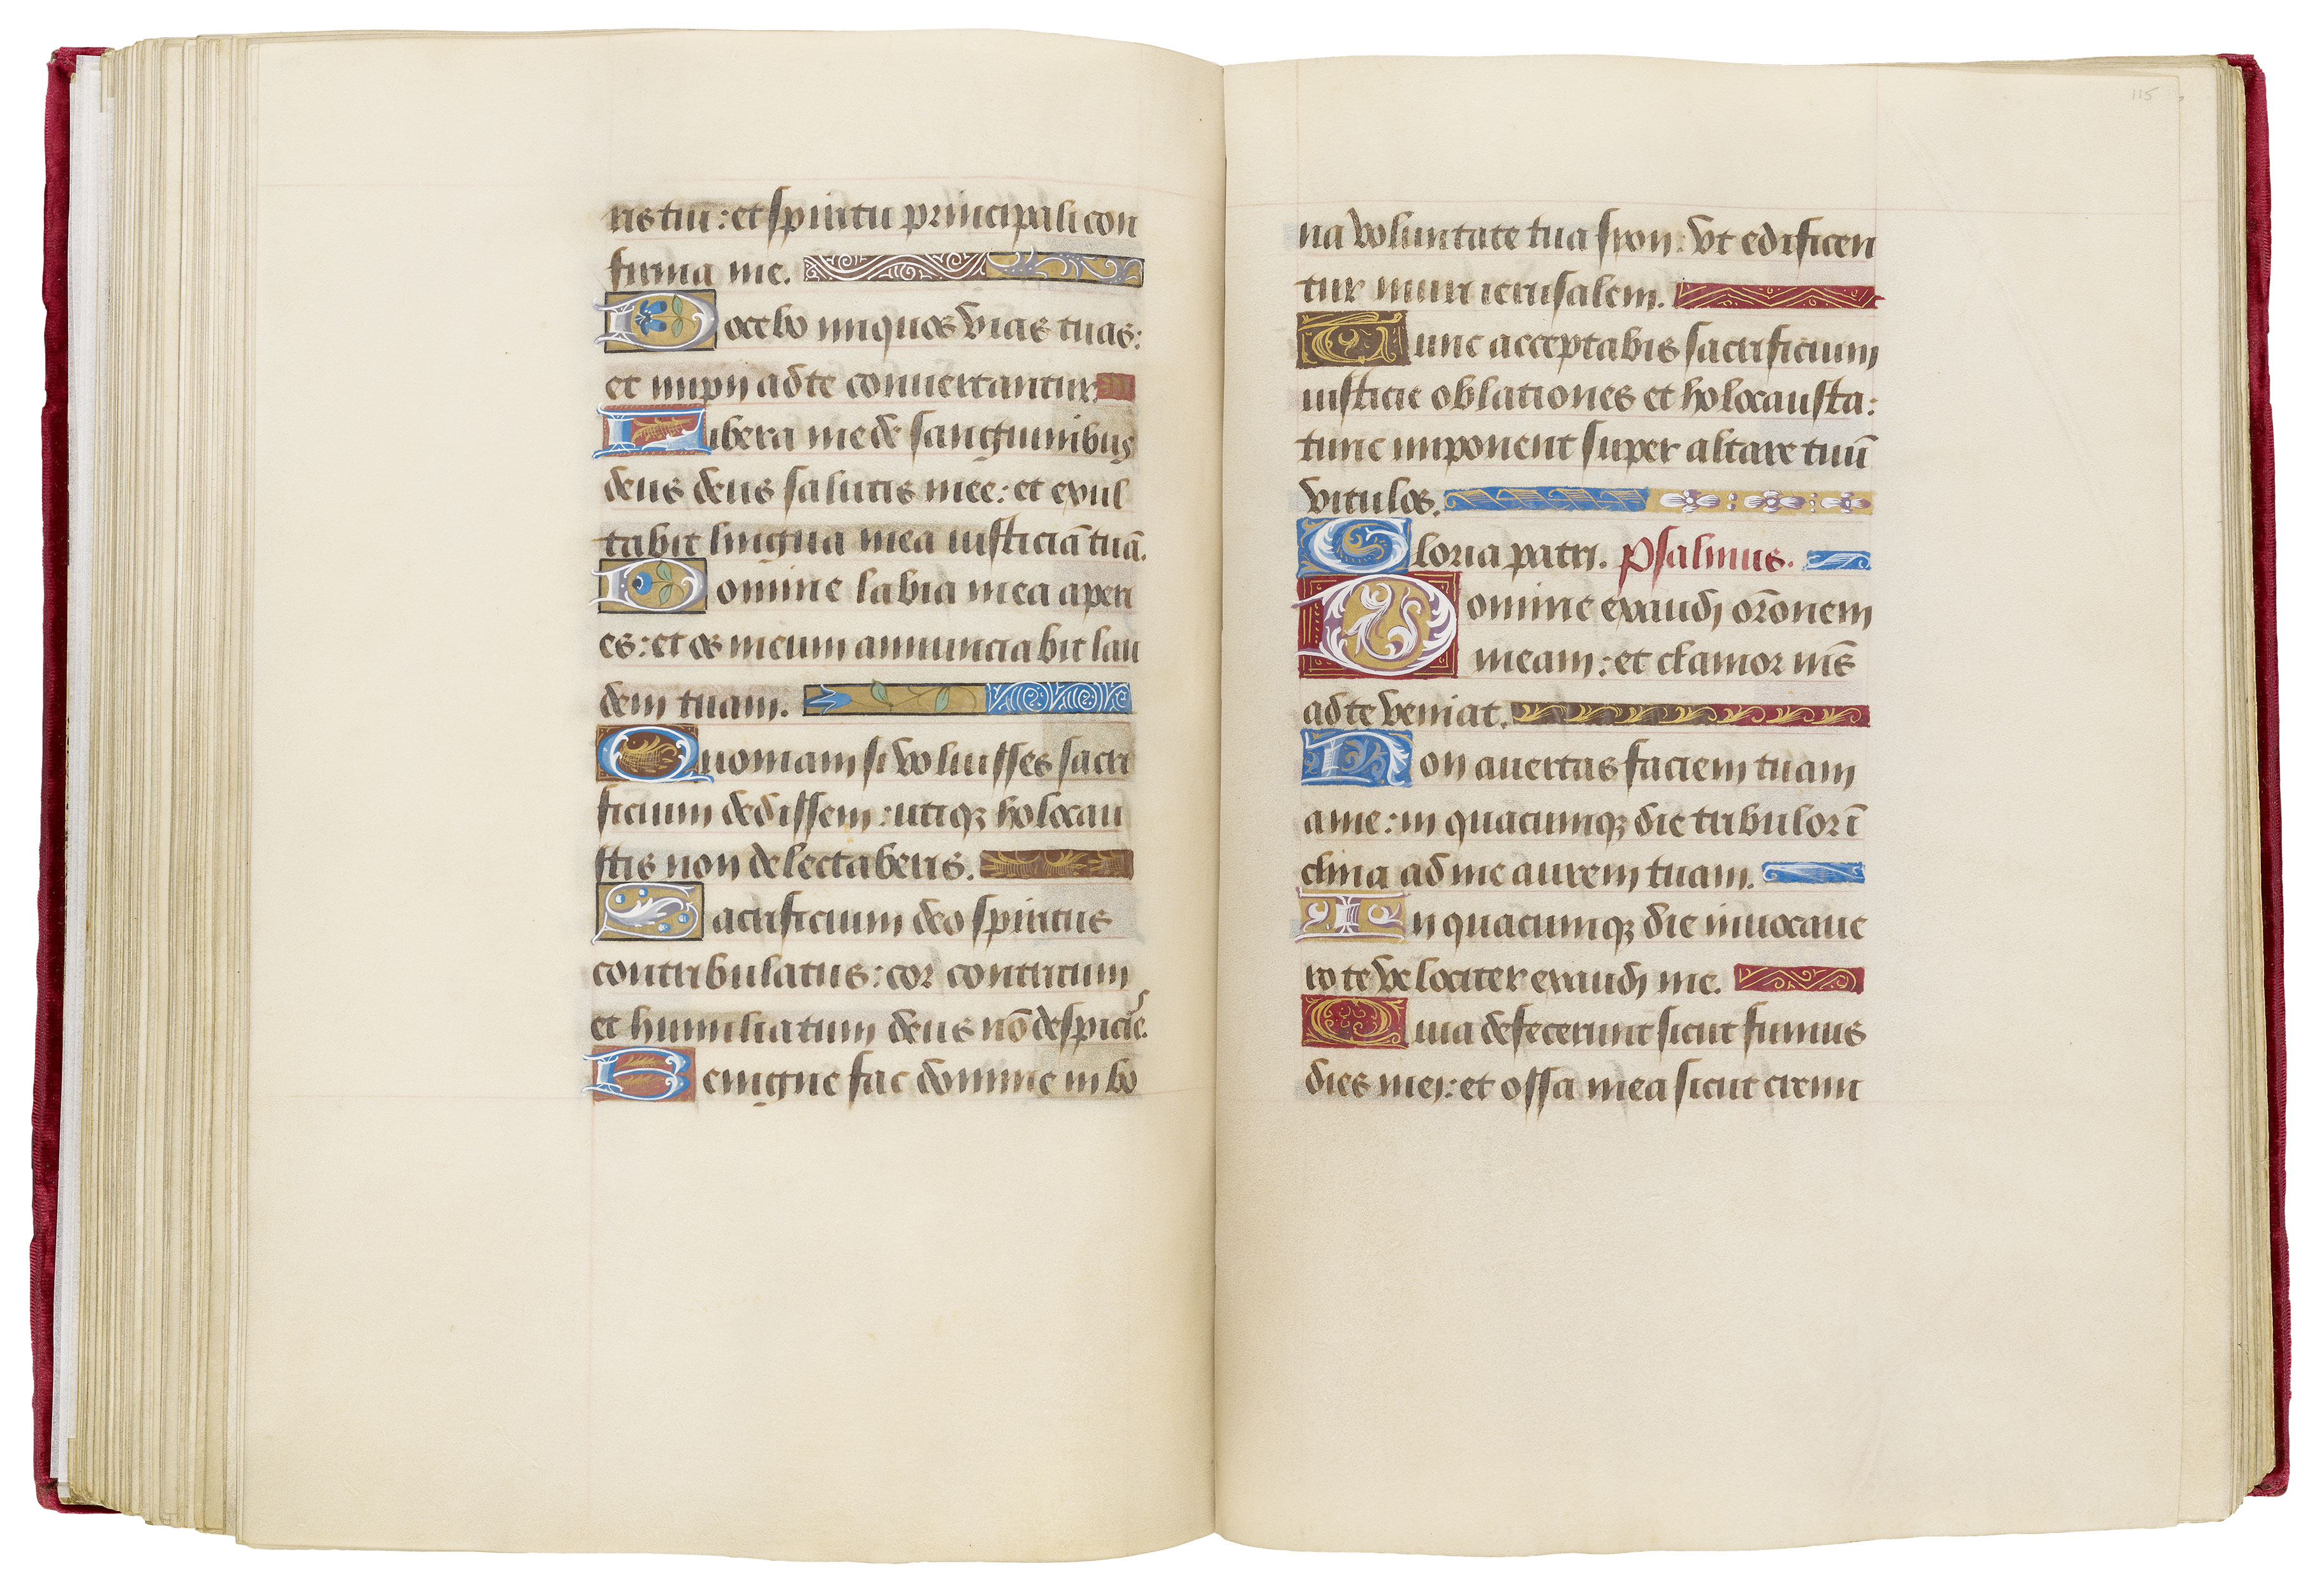 ris tui: et spiritu principali con
firma me.
Docebo iniquos vias tuas:
et impij ad te convertantur.
Libera me de sanguinibus
deus deus salutis mee: et exul
tabit lingua mea iusticiā tuā.
Domine labia mea aperi
es: et os meum annunciabit lau
dem tuam.
Quoniam si voluisses sacri
ficium dedissem: utiqꝫ holocau
stis non delectaberis.
Sacrificium deo spiritus
contribulatus: cor contritum
et humiliatum deus nō despicies.
Benigne fac domine in bo
115
na voluntate tua syon: vt edificen
tur muri ierusalem.
Tunc acceptabis sacrificium
iusticie oblationes et holocausta:
tunc imponent super altare tuū
vitulos.
Gloria patri. Psalmus.
Domine exaudj orōnem
meam: et clamor me͞s
ad te veniat.
Non avertas faciem tuam
a me: in quacumqꝫ die tribulor ī
clina ad me aurem tuam.
In quacumqꝫ die invocave
ro te velociter exaudj me.
Quia defecerunt sicut fumus
dies mej: et ossa mea sicut cremi